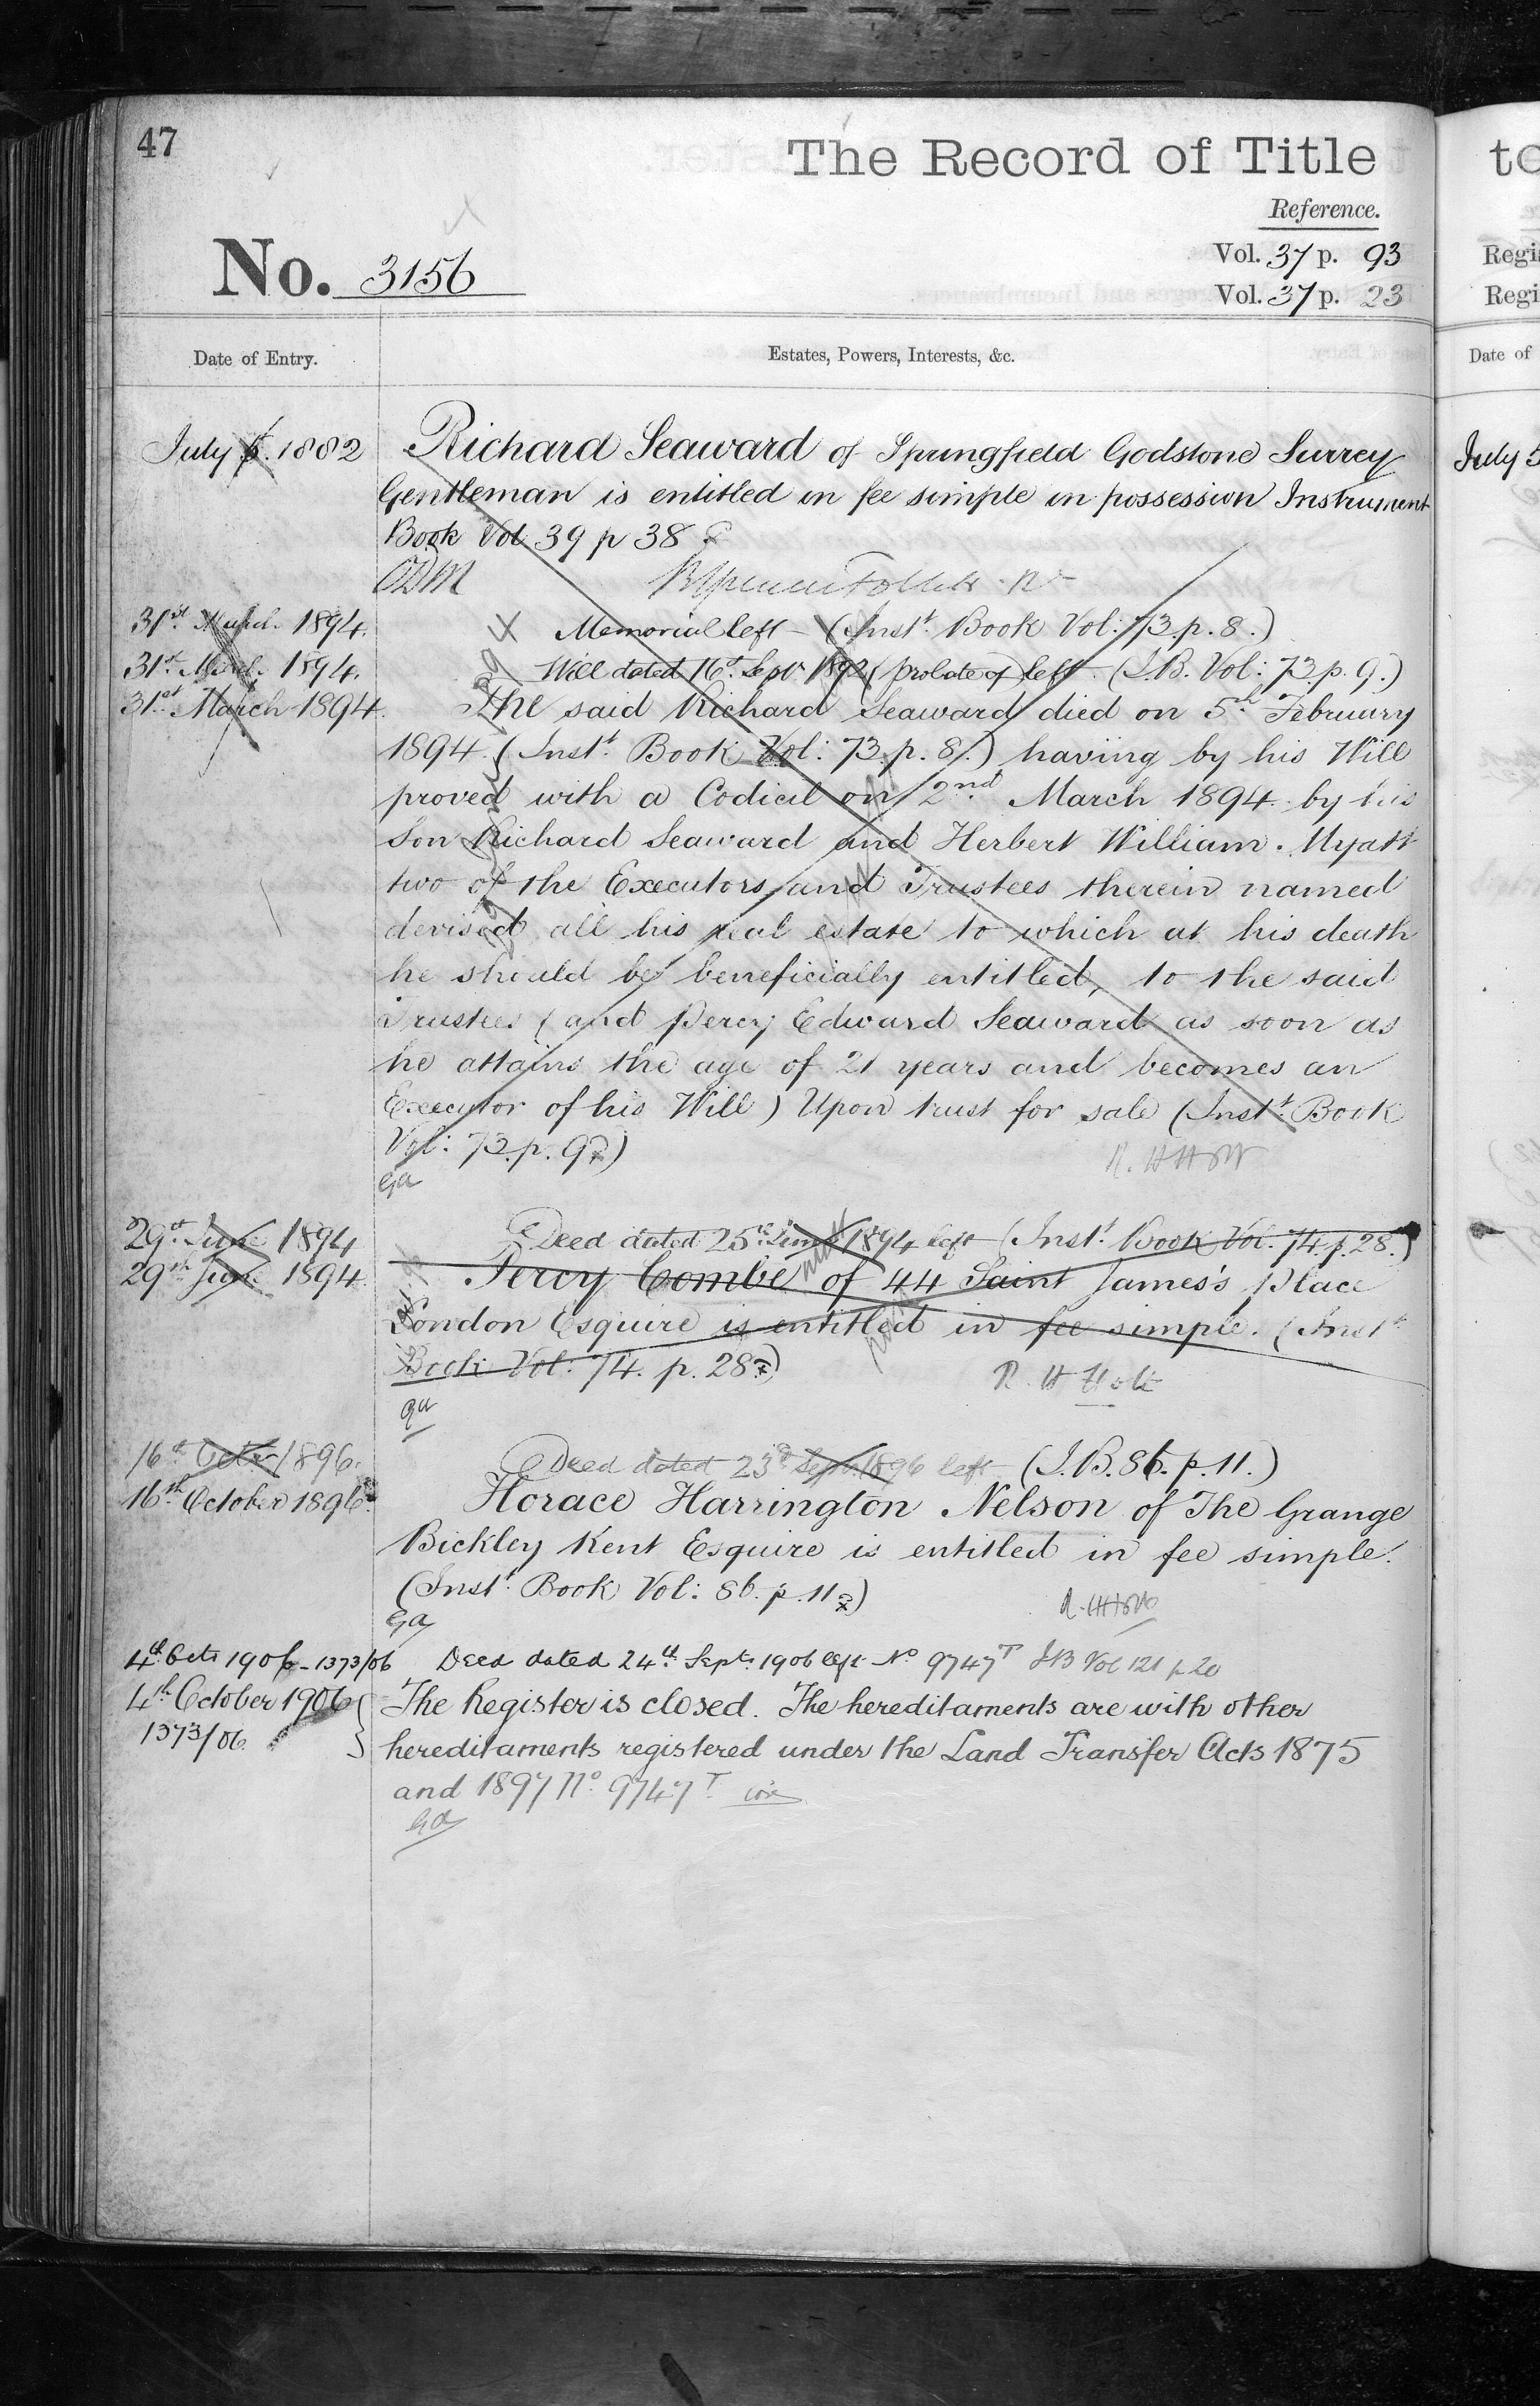 47
The Record of Title
Reference.
No. 3156
Vol. 37 p. 93
Vol. 37 p. 23
Date of Entry.
Estates, Powers, Interests, &c.
July 5. 1882
Richard Seaward of Springfield Godstone Surrey
Gentleman is entitled in fee simple in possession Instrument
Book Vol 39 p 38
31st March 1894. Memorial left – (Inst. Book Vol: 73. p. 8.)
31st March 1894. Will dated 16th Sepr 1892 (probate of) left. (I.B. Vol: 73. p. 9.)
31st March 1894. The said Richard Seaward died on 5th February
1894 (Inst. Book Vol: 73. p. 8.) having by his Will
proved with a Codicil on 2nd March 1894 by his
Son Richard Seaward and Herbert William Myatt
two of the Executors and Trustees therein named
devised all his real estate to which at his death
he should be beneficially entitled, to the said
Trustees (and Percy Edward Seaward as soon as
he attains the age of 21 years and becomes an
Executor of his Will) Upon trust for sale (Inst. Book
Vol: 73. p. 9)
Ga
29th June 1894 Deed dated 25th June 1894 left (Inst. Book Vol. 74. p. 28.)
29th June 1894. Percy Combe of 44 Saint James's Place
London Esquire is entitled in fee simple. (Inst.
Book Vol: 74. p. 28)
R. H Holt
Ga
16th Octr 1896. Deed dated 23d Sepr. 1896 left (I.B. 86. p. 11.)
16th October 1896 Horace Harrington Nelson of The Grange
Bickley Kent Esquire is entitled in fee simple.
(Inst. Book Vol: 86. p. 11)
Ga
4th Octr 1906 - 1373/06 Deed dated 24th Sept. 1906 left No 9747T IB Vol 121 p 20
4th October 1906 The Register is closed. The hereditaments are with other
1373/06. hereditaments registered under the Land Transfer Acts 1875
and 1897 No. 9747T
Ga
to
Regi
Regi
Date of
July 5